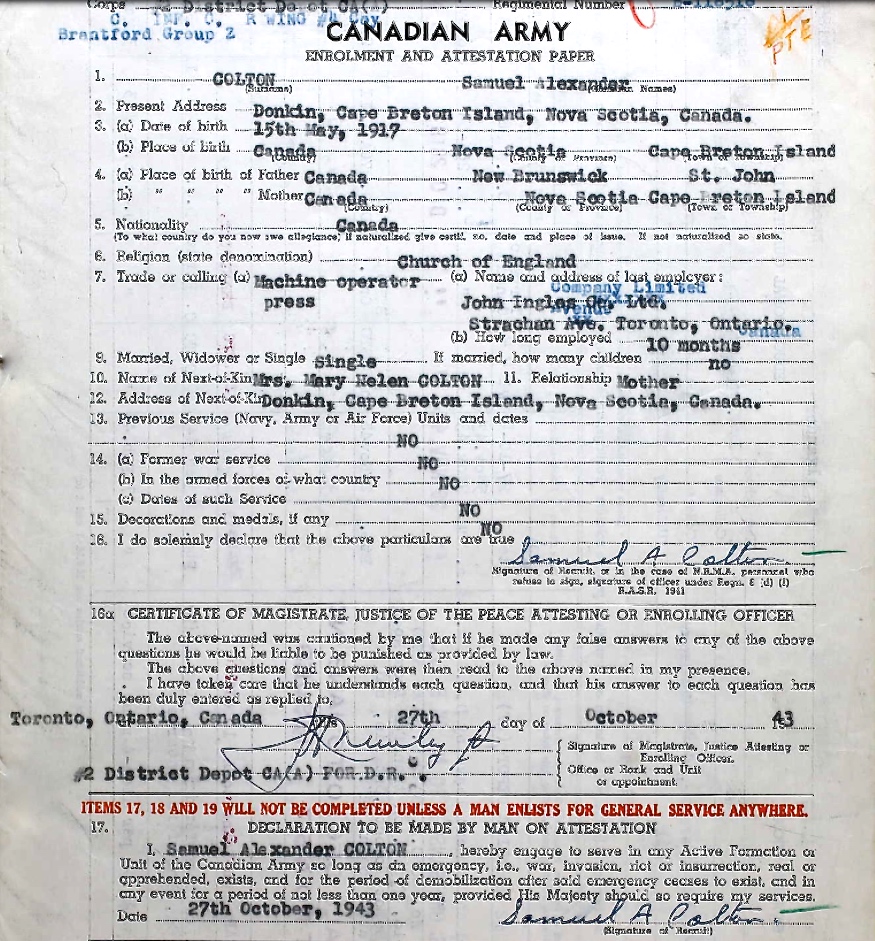 Corps #2 District Depot CA(A) Regimental Number
C. INF. C. R WING #4 Coy
Brantford Group Z
PTE
CANADIAN ARMY
ENROLMENT AND ATTESTATION PAPER
1. COLTON Samuel Alexander
(Surname) (Christian Names)
2. Present Address Donkin, Cape Breton Island, Nova Scotia, Canada.
3. (a) Date of birth 15th May, 1917
(b) Place of birth Canada Nova Scotia Cape Breton Island
(Country) (County or Province) (Town or Township)
4. (a) Place of birth of Father Canada New Brunswick St. John
(b) " " " Mother Canada Nova Scotia Cape Breton Island
(Country) (County or Province) (Town or Township)
5. Nationality Canada
(To what country do you now owe allegiance; if naturalized give certif. no. date and place of issue. If not naturalized so state.
6. Religion (state denomination) Church of England
7. Trade or calling (a) Machine operator (a) Name and address of last employer:
Company Limited
press John Ingles Co. Ltd.
Avenue
Strachan Ave. Toronto, Ontario.
Canada
(b) How long employed 10 months
9. Married, Widower or Single Single If married, how many children no
10. Name of Next-of-Kin Mrs. Mary Helen COLTON 11. Relationship Mother
12. Address of Next-of-Kin Donkin, Cape Breton Island, Nova Scotia, Canada.
13. Previous Service (Navy, Army or Air Force) Units and dates
NO
14. (a) Former war service NO
(b) In the armed forces of what country NO
(c) Dates of such Service NO
15. Decorations and medals, if any NO
16. I do solemnly declare that the above particulars are true
Samuel A Colton
Signature of Recruit, or in the case of N.R.M.A. personnel who
refuse to sign, signature of officer under Regn. 6 (d) (i)
R.A.S.R. 1941
16a CERTIFICATE OF MAGISTRATE, JUSTICE OF THE PEACE ATTESTING OR ENROLLING OFFICER
The above-named was cautioned by me that if he made any false answers to any of the above
questions he would be liable to be punished as provided by law.
The above questions and answers were then read to the above named in my presence.
I have taken care that he understands each question, and that his answer to each question has
been duly entered as replied to,
Toronto, Ontario, Canada this 27th day of October 43
Signature of Magistrate, Justice Attesting or
Enrolling Officer.
Office or Rank and Unit
or appointment.
#2 District Depot CA(A) FOR.D.R.
ITEMS 17, 18 AND 19 WILL NOT BE COMPLETED UNLESS A MAN ENLISTS FOR GENERAL SERVICE ANYWHERE.
17. DECLARATION TO BE MADE BY MAN ON ATTESTATION
I, Samuel Alexander COLTON, hereby engage to serve in any Active Formation or
Unit of the Canadian Army so long as an emergency, i.e., war, invasion, riot or insurrection, real or
apprehended, exists, and for the period of demobilization after said emergency ceases to exist, and in
any event for a period of not less than one year, provided His Majesty should so require my services.
Date 27th October, 1943 Samuel A Colton
(Signature of Recruit)